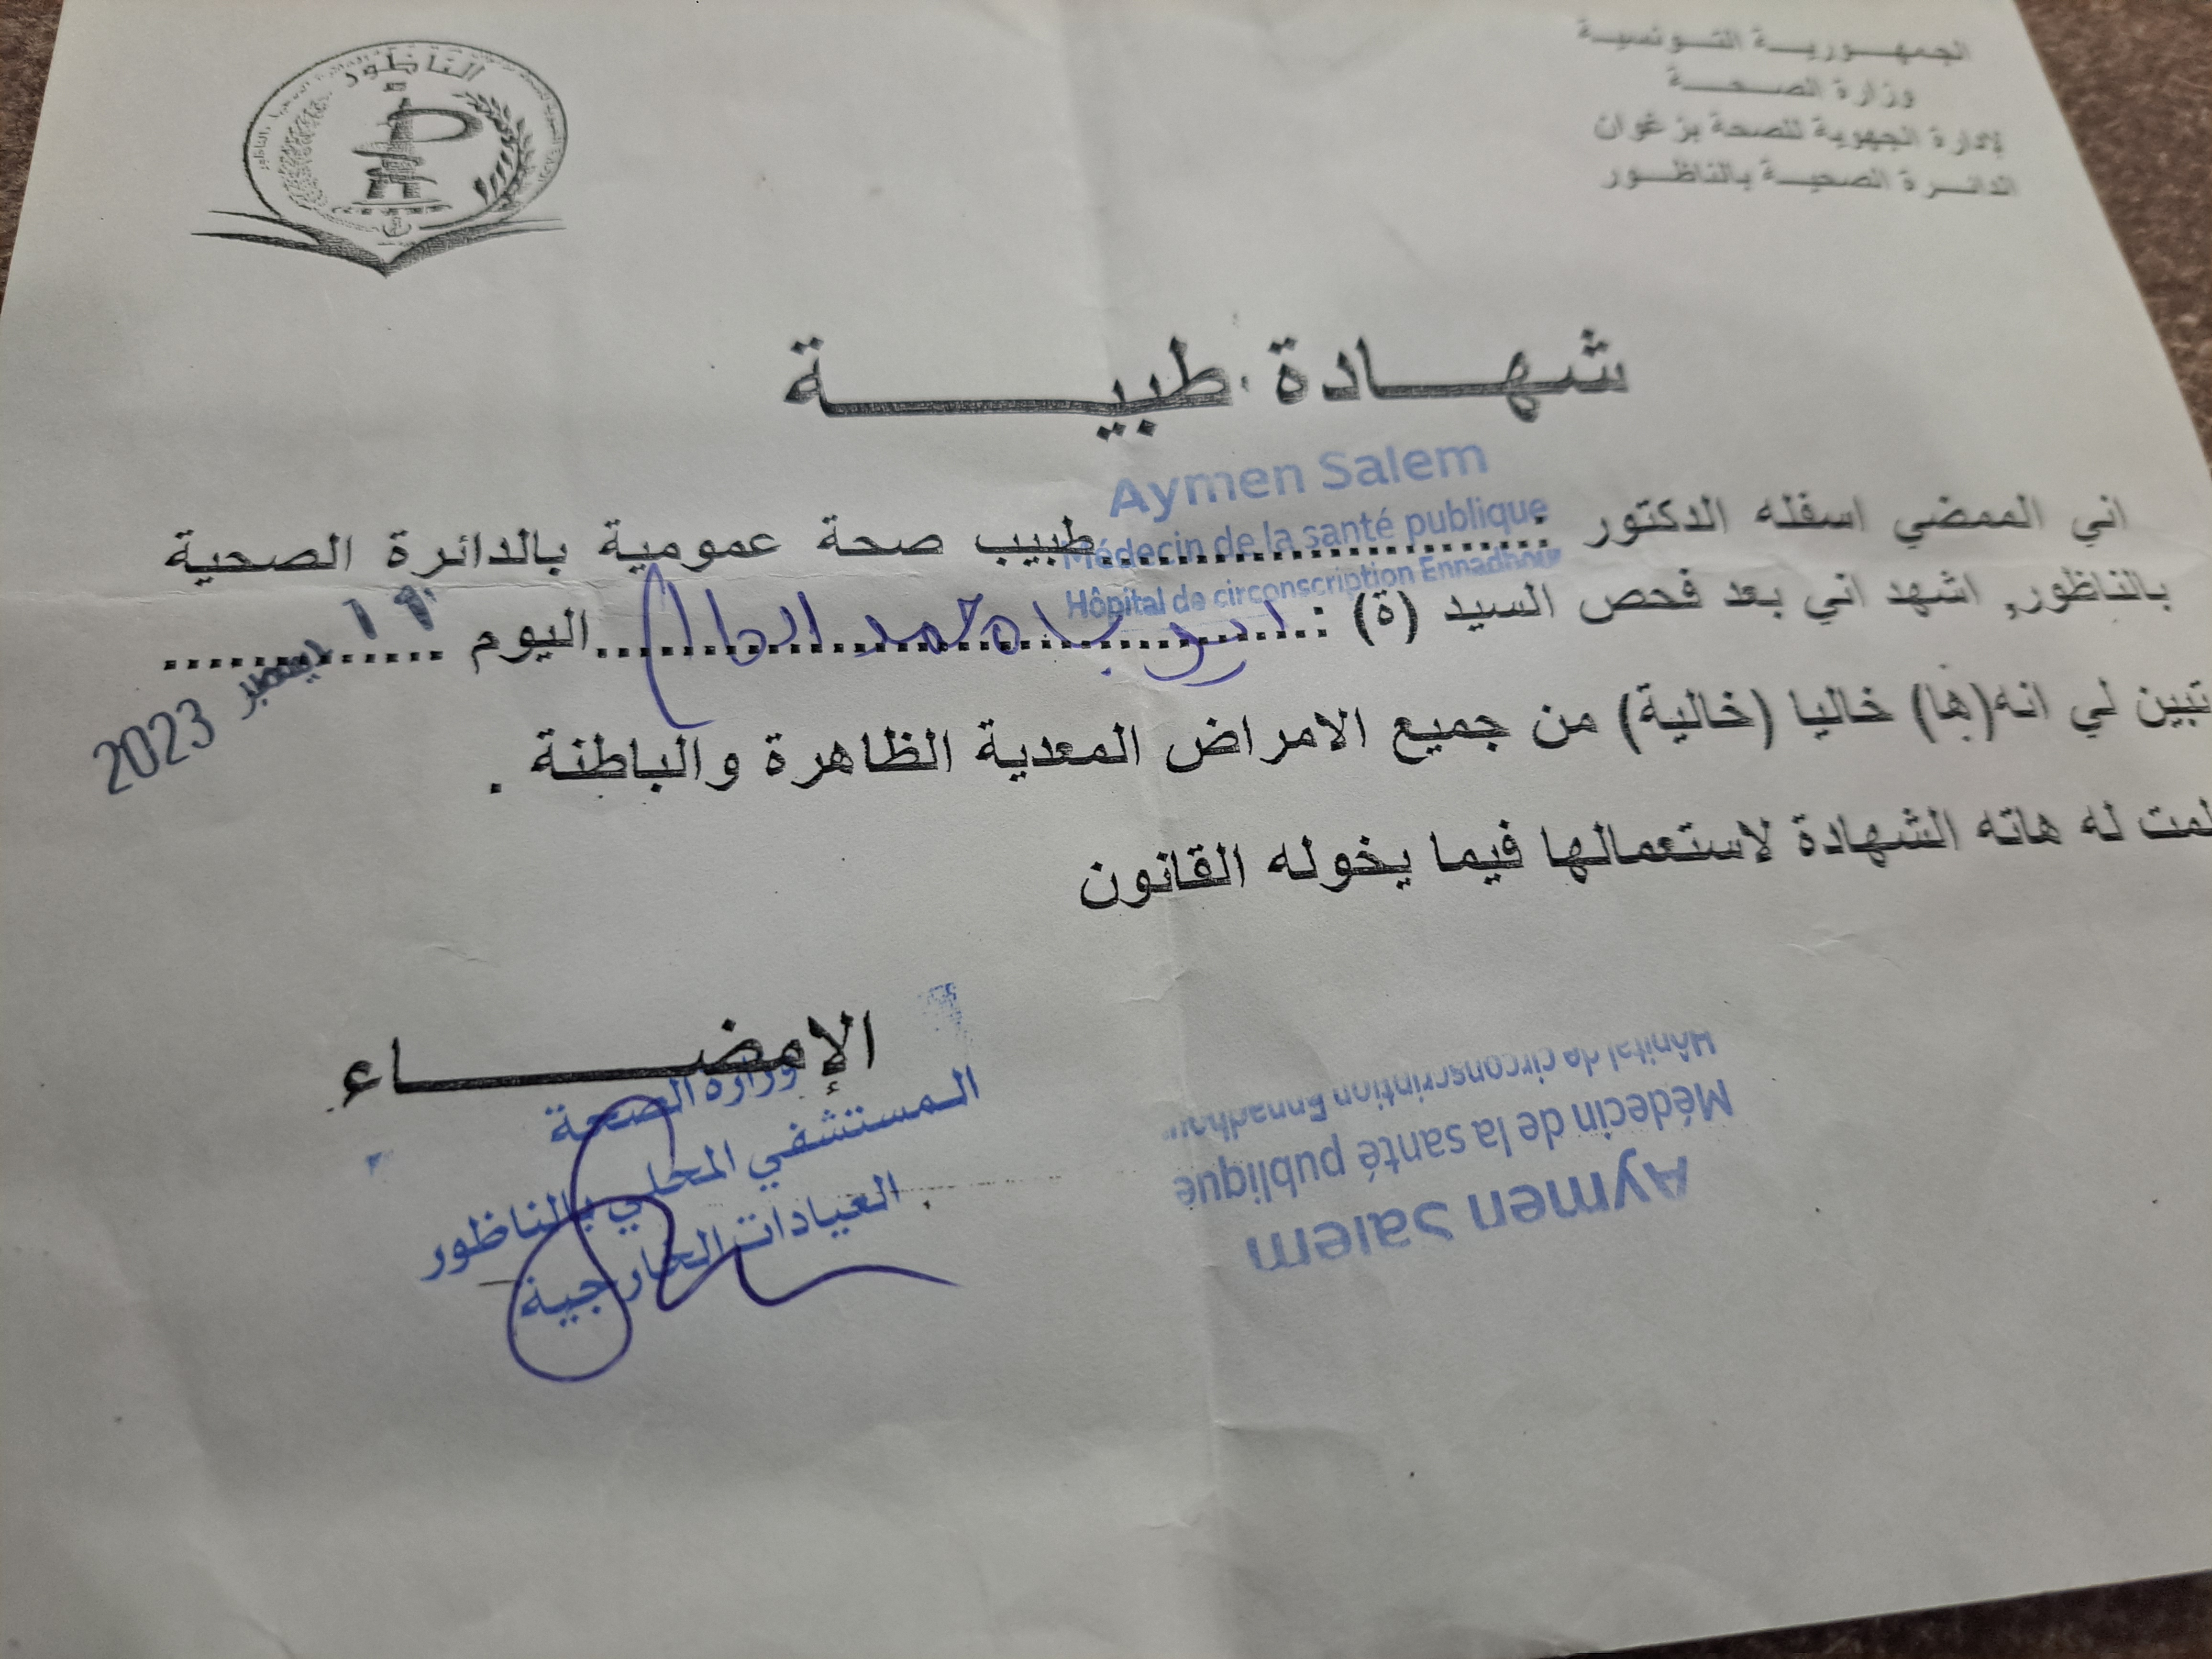 الجمهورية التونسية
وزارة الصحة
لإدارة الجهوية للصحة بزغوان
الدائرة الصحية بالناظور
الناظور
شهادة طبية
Aymen Salem
Médecin de la santé publique
Hôpital de circonscription Ennadhour
اني الممضي اسفله الدكتور :....................طبيب صحة عمومية بالدائرة الصحية
بالناظور, اشهد اني بعد فحص السيد (ة) :.... محمد ....اليوم ............
ديسمبر 2023
تبين لي انه(ها) خاليا (خالية) من جميع الامراض المعدية الظاهرة والباطنة .
لمت له هاته الشهادة لاستعمالها فيما يخوله القانون
الإمضاء
وزارة الصحة
المستشفي المحلي بالناظور
العيادات الخارجية
Aymen Salem
Médecin de la santé publique
Hôpital de circonscription Ennadhour